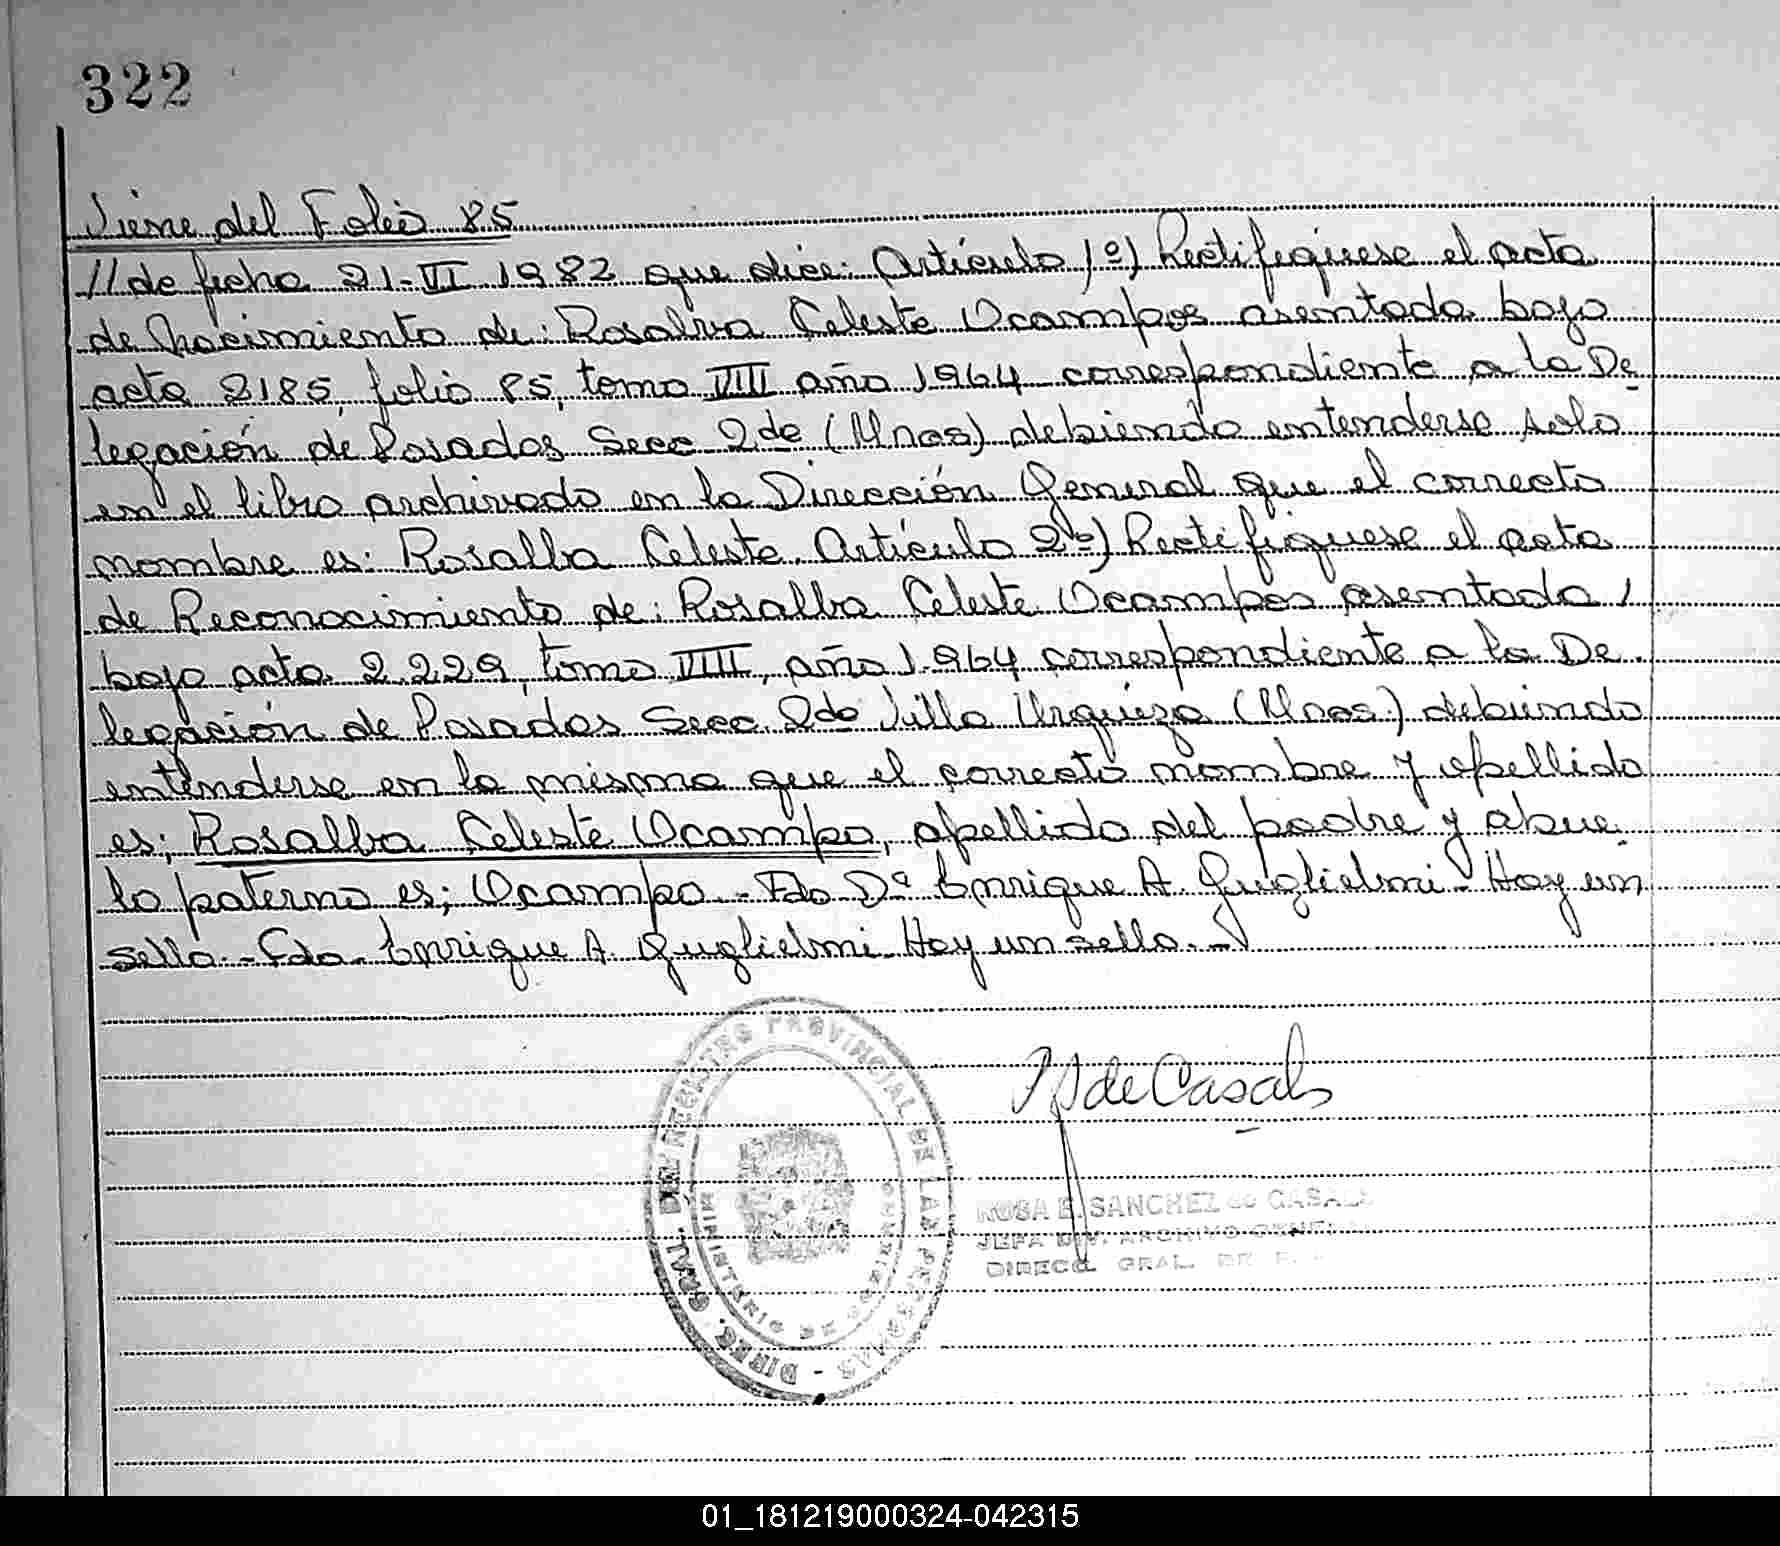 322
Viene del Folio 85
// de fecha 21-VI 1982 que dice: Artículo 1º) Rectifíquese el acta
de Nacimiento de: Rosalva Celeste Ocampos asentada bajo
acta 2185, folio 85, tomo VIII año 1964 correspondiente a la De
legación de Posadas Secc 2da (Mnes) debiendo entenderse solo
en el libro archivado en la Dirección General que el correcto
nombre es: Rosalba Celeste. Artículo 2º) Rectifíquese el acta
de Reconocimiento de: Rosalba Celeste Ocampos asentada /
bajo acta 2.229, tomo VIII, año 1.964 correspondiente a la De
legación de Posadas Secc. 2da Villa Urquiza (Mnes.) debiendo
entenderse en la misma que el correcto nombre y apellido
es; Rosalba Celeste Ocampo, apellido del padre y abue
lo paterno es; Ocampo - Fdo Dº Enrique A. Guglielmi - Hay un
sello. - Fdo - Enrique A Guglielmi - Hay un sello. -
de Casals
DIREC. GRAL. DEL REGISTRO PROVINCIAL DE LAS PERSONAS -
MINISTERIO DE GOBIERNO
ROSA E. SANCHEZ de CASALS
JEFA DIV. ARCHIVO GENE
DIRECC. GRAL. DE R.
01_181219000324-042315